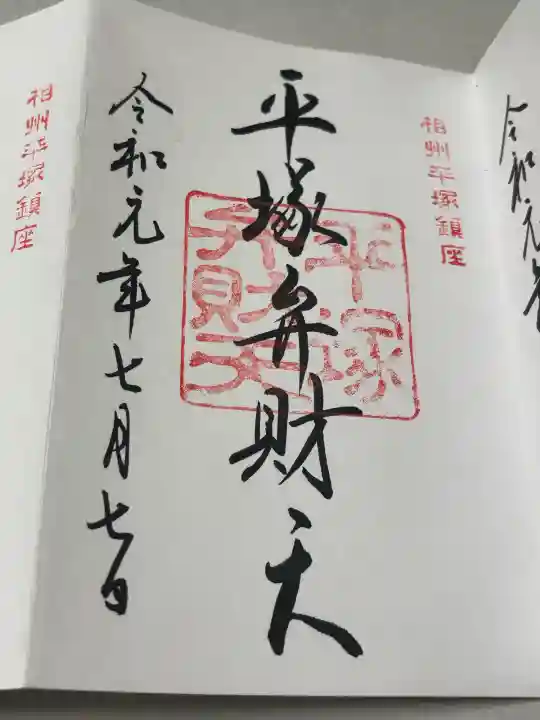 令和元年
相州平塚鎮座
平塚弁財天
平塚弁財天
令和元年七月七日
相州平塚鎮座